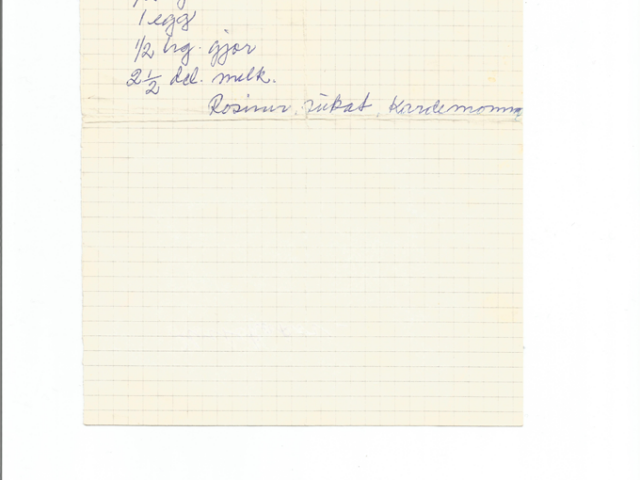 1 egg
1/2 hg. gjær
2 1/2 del. melk.
Rosiner, sukat, Kardemomme